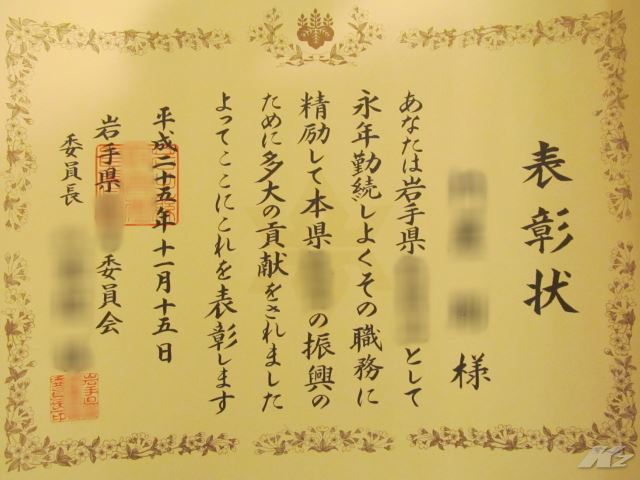 表彰状
様
あなたは岩手県 として
永年勤続しよくその職務に
精励して本県 の振興の
ために多大の貢献をされました
よってここにこれを表彰します
平成二十五年十一月十五日
岩手県 委員会
委員長
K2